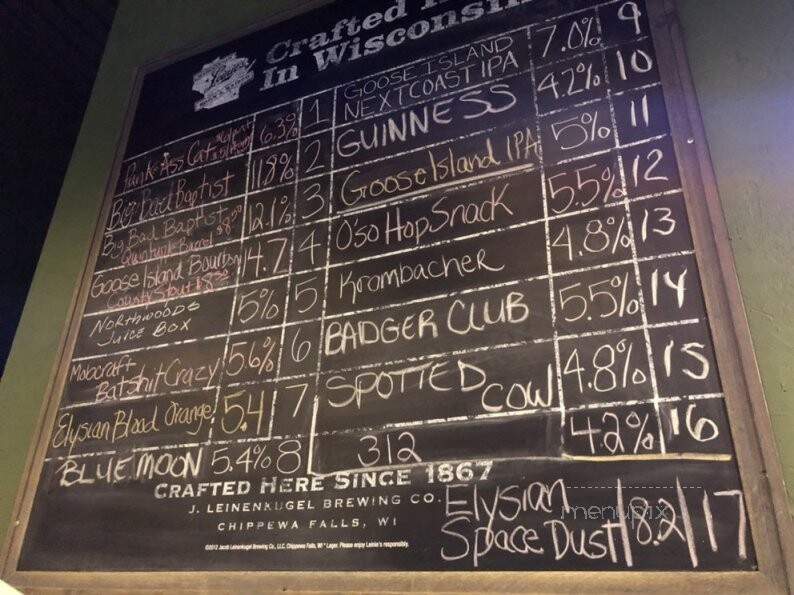 Crafted
In Wisconsin
Punk Ass Cat 6.3% 1
Big Bad Baptist 11.8% 2
Big Bad Baptist
Quintuple Barrel 12.1% 3
Goose Island Bourbon
County Stout 14.7 4
NORTHWOODS
JUICE BOX 5% 5
Mobcraft
Batshit Crazy 5.6% 6
Elysian Blood Orange 5.4 7
BLUE MOON 5.4% 8
GOOSE ISLAND
NEXT COAST IPA 7.0% 9
GUINNESS 4.2% 10
Goose Island IPA 5% 11
Oso Hop Snack 5.5% 12
Krombacher 4.8% 13
BADGER CLUB 5.5% 14
SPOTTED
COW 4.8% 15
312 4.2% 16
Elysian
Space Dust 8.2 17
CRAFTED HERE SINCE 1867
J. LEINENKUGEL BREWING CO.
CHIPPEWA FALLS, WI
©2012 Jacob Leinenkugel Brewing Co., LLC, Chippewa Falls, WI * Lager. Please enjoy Leinie's responsibly.
menupix